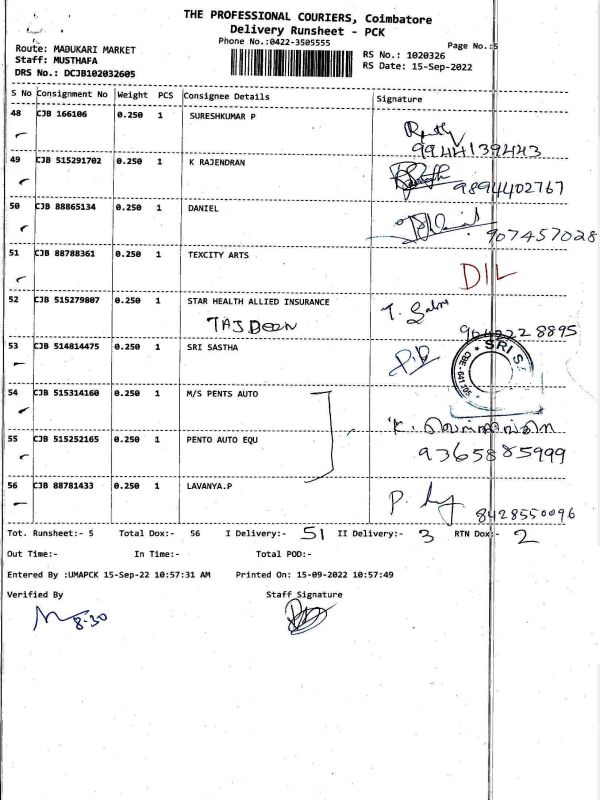 THE PROFESSIONAL COURIERS, Coimbatore
Delivery Runsheet - PCK
Phone No.:0422-3505555
Page No.:5
Route: MABUKARI MARKET
RS No.: 1020326
Staff: MUSTHAFA
RS Date: 15-Sep-2022
DRS No.: DCJB102032605
S No Consignment No Weight PCS Consignee Details Signature
48 CJB 166106 0.250 1 SURESHKUMAR P
9944139443
49 CJB 515291702 0.250 1 K RAJENDRAN
9894402767
50 CJB 88865134 0.250 1 DANIEL
907457028
51 CJB 88788361 0.250 1 TEXCITY ARTS
DIL
52 CJB 515279807 0.250 1 STAR HEALTH ALLIED INSURANCE
TAJDEEN
8895
53 CJB 514814475 0.250 1 SRI SASTHA
SRI S
54 CJB 515314160 0.250 1 M/S PENTS AUTO
55 CJB 515252165 0.250 1 PENTO AUTO EQU
9365885999
56 CJB 88781433 0.250 1 LAVANYA.P
8428550096
Tot. Runsheet:- 5 Total Dox:- 56 I Delivery:- 51 II Delivery:- 3 RTN Dox:- 2
Out Time:- In Time:- Total POD:-
Entered By :UMAPCK 15-Sep-22 10:57:31 AM Printed On: 15-09-2022 10:57:49
Verified By Staff Signature
8-30